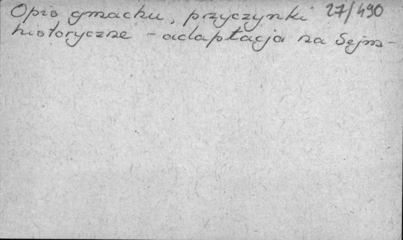 Opis gmachu, przyczynki 27/490
historyczne - adaptacja na Sejm -